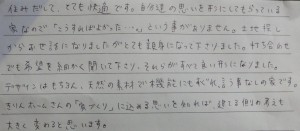 住みだして、とても快適です。自分達の思いを形にしてもらっている
家なので「こうすればよかった…」という事がありません。土地探し
からお世話になりましたがとても親身になって下さりました。打ち合わせ
でも希望を細かく聞いて下さり、それらがすべて良い形になりました。
デザインはもちろん、天然の素材で機能にもすぐれ、言う事なしの家です。
さりんたーさんの「家づくり」に込める思いを知れば、建てる側の考えも
大きく変わると思います。